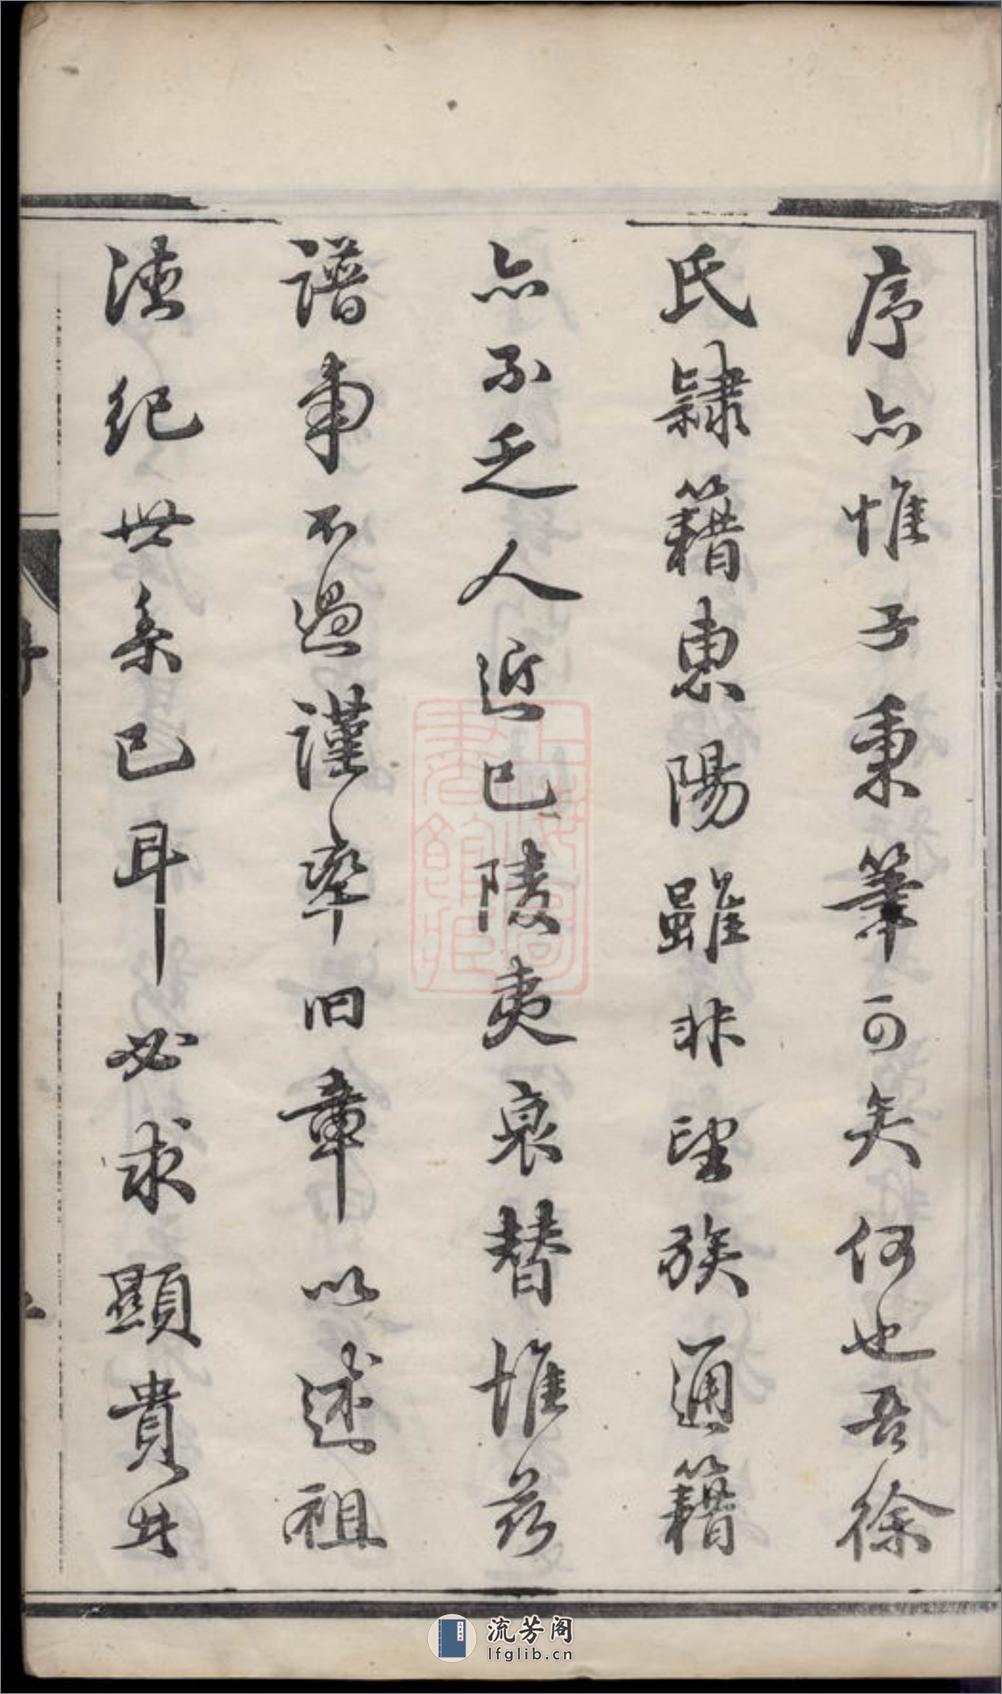 序亦惟予秉筆可矣何也吾徐
氏隸籍惠陽雖非望族通籍
亦不乏人近已陵夷衰替惟茲
譜事不過謹率旧章以述祖
德紀世系已耳必求顯貴其
上海圖書館藏
流芳阁
lfglib.cn